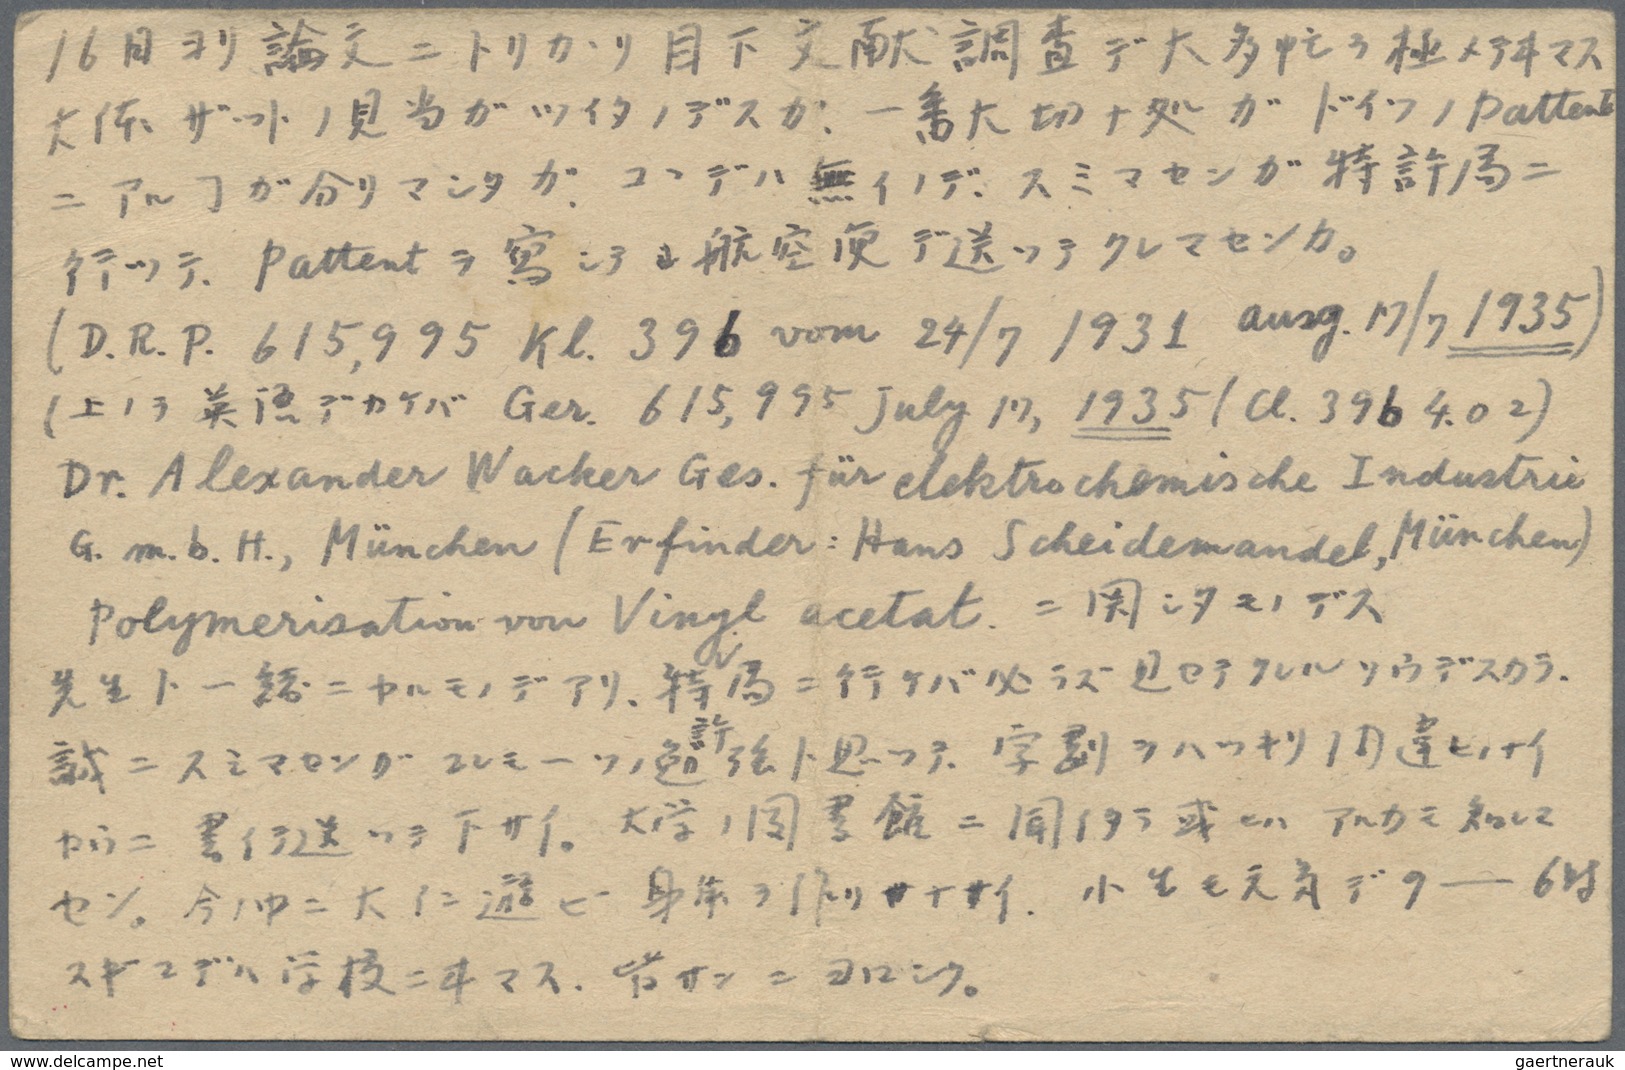 16日ヨリ論文ニトリカヽリ目下文献調査デ大多忙ヲ極メテヰマス
大体ザットノ見当ガツイタノデスガ、一番大切ナ処ガドイツノPattent
ニアルヿガ分リマシタガ、コヽデハ無イノデ、スミマセンガ特許局ニ
行ッテ、Pattentヲ寫シテ 航空便デ送ッテクレマセンカ。
(D.R.P. 615,995 Kl. 39b vom 24/7 1931 ausg. 17/7 1935)
(上ノヲ英語デカケバ Ger. 615,995 July 17, 1935 (Cl. 39b 4.02)
Dr. Alexander Wacker Ges. für elektrochemische Industrie
G.m.b.H., München (Erfinder: Hans Scheidemandel, München)
Polymerisation von Vinyl acetat. ニ関シタモノデス
先生ト一緒ニヤルモノデアリ、特許局ニ行ケバ必ラズ見セテクレルソウデスカラ、
誠ニスミマセンガコレモ一ツノ勉強ト思ッテ、字劃ヲハッキリ間違ヒノナイ
ヤウニ書イテ送ッテ下サイ。大学ノ図書館ニ聞イタラ或ヒハアルカモ知レマ
セン。今ノ中ニ大イニ遊ビ身体ヲ作リナサイ. 小生モ兎角デ9—6時
スギマデハ学校ニヰマス. 皆サンニヨロシク。
www.delcampe.net
gaertnerauk